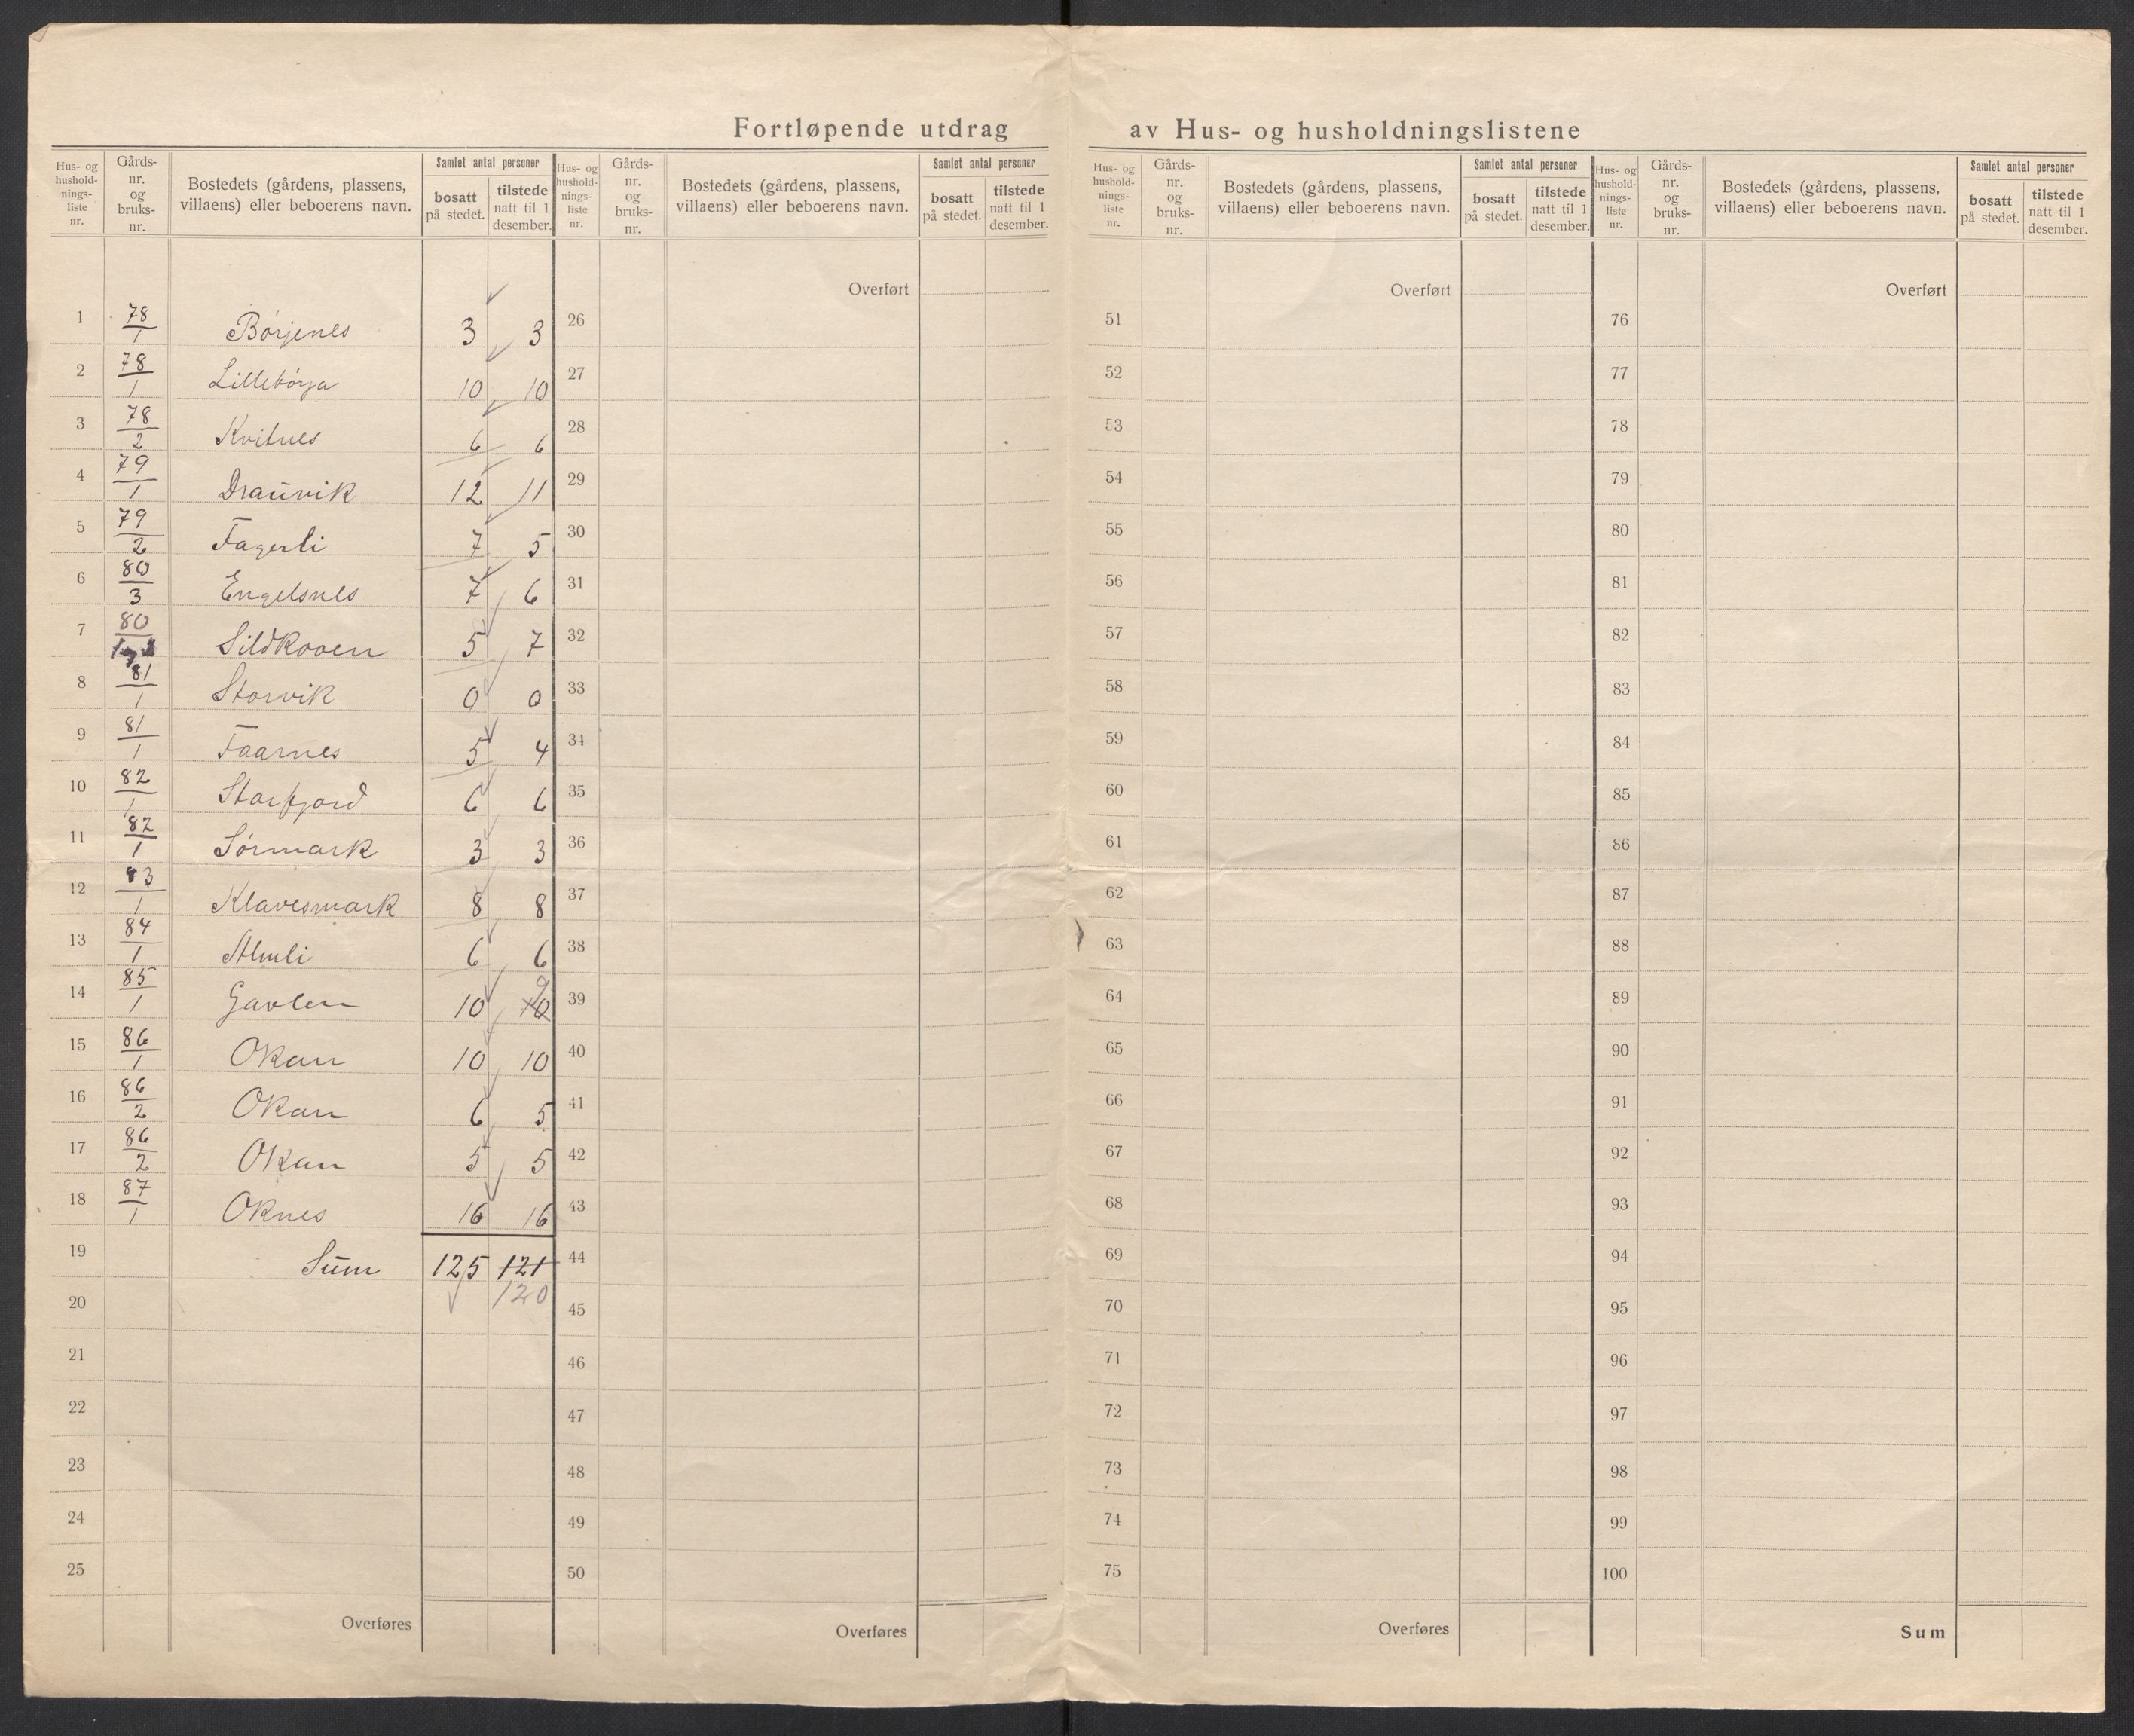 Fortløpende utdrag av Hus- og husholdningslistene
Hus- og husholdningsliste nr. | Gårds-nr. og bruks-nr. | Bostedets (gårdens, plassens, villaens) eller beboerens navn. | Samlet antal personer | bosatt på stedet. | tilstede natt til 1 desember.
Hus- og husholdningsliste nr. | Gårds-nr. og bruks-nr. | Bostedets (gårdens, plassens, villaens) eller beboerens navn. | Samlet antal personer | bosatt på stedet. | tilstede natt til 1 desember.
Hus- og husholdningsliste nr. | Gårds-nr. og bruks-nr. | Bostedets (gårdens, plassens, villaens) eller beboerens navn. | Samlet antal personer | bosatt på stedet. | tilstede natt til 1 desember.
Hus- og husholdningsliste nr. | Gårds-nr. og bruks-nr. | Bostedets (gårdens, plassens, villaens) eller beboerens navn. | Samlet antal personer | bosatt på stedet. | tilstede natt til 1 desember.
1 78/1 Börjenes 3 3
2 78/1 Lillebörja 10 10
3 78/2 Kvitnes 6 6
4 79/1 Draŭvik 12 11
5 79/2 Fagerli 7 5
6 80/3 Engelsnes 7 6
7 80 Sildkooen 5 7
8 81/1 Storvik 0 0
9 81/1 Faarnes 5 4
10 82/1 Storfjord 6 6
11 82/1 Sörmark 3 3
12 83/1 Klavesmark 8 8
13 84/1 Almli 6 6
14 85/1 Gavlen 10 10 9
15 86/1 Okan 10 10
16 86/2 Okan 6 5
17 86/2 Okan 5 5
18 87/1 Oknes 16 16
19 Sŭm 125 121
20 120
21
22
23
24
25
Overføres
Overført
26
27
28
29
30
31
32
33
34
35
36
37
38
39
40
41
42
43
44
45
46
47
48
49
50
Overføres
Overført
51
52
53
54
55
56
57
58
59
60
61
62
63
64
65
66
67
68
69
70
71
72
73
74
75
Overføres
Overført
76
77
78
79
80
81
82
83
84
85
86
87
88
89
90
91
92
93
94
95
96
97
98
99
100
Sum